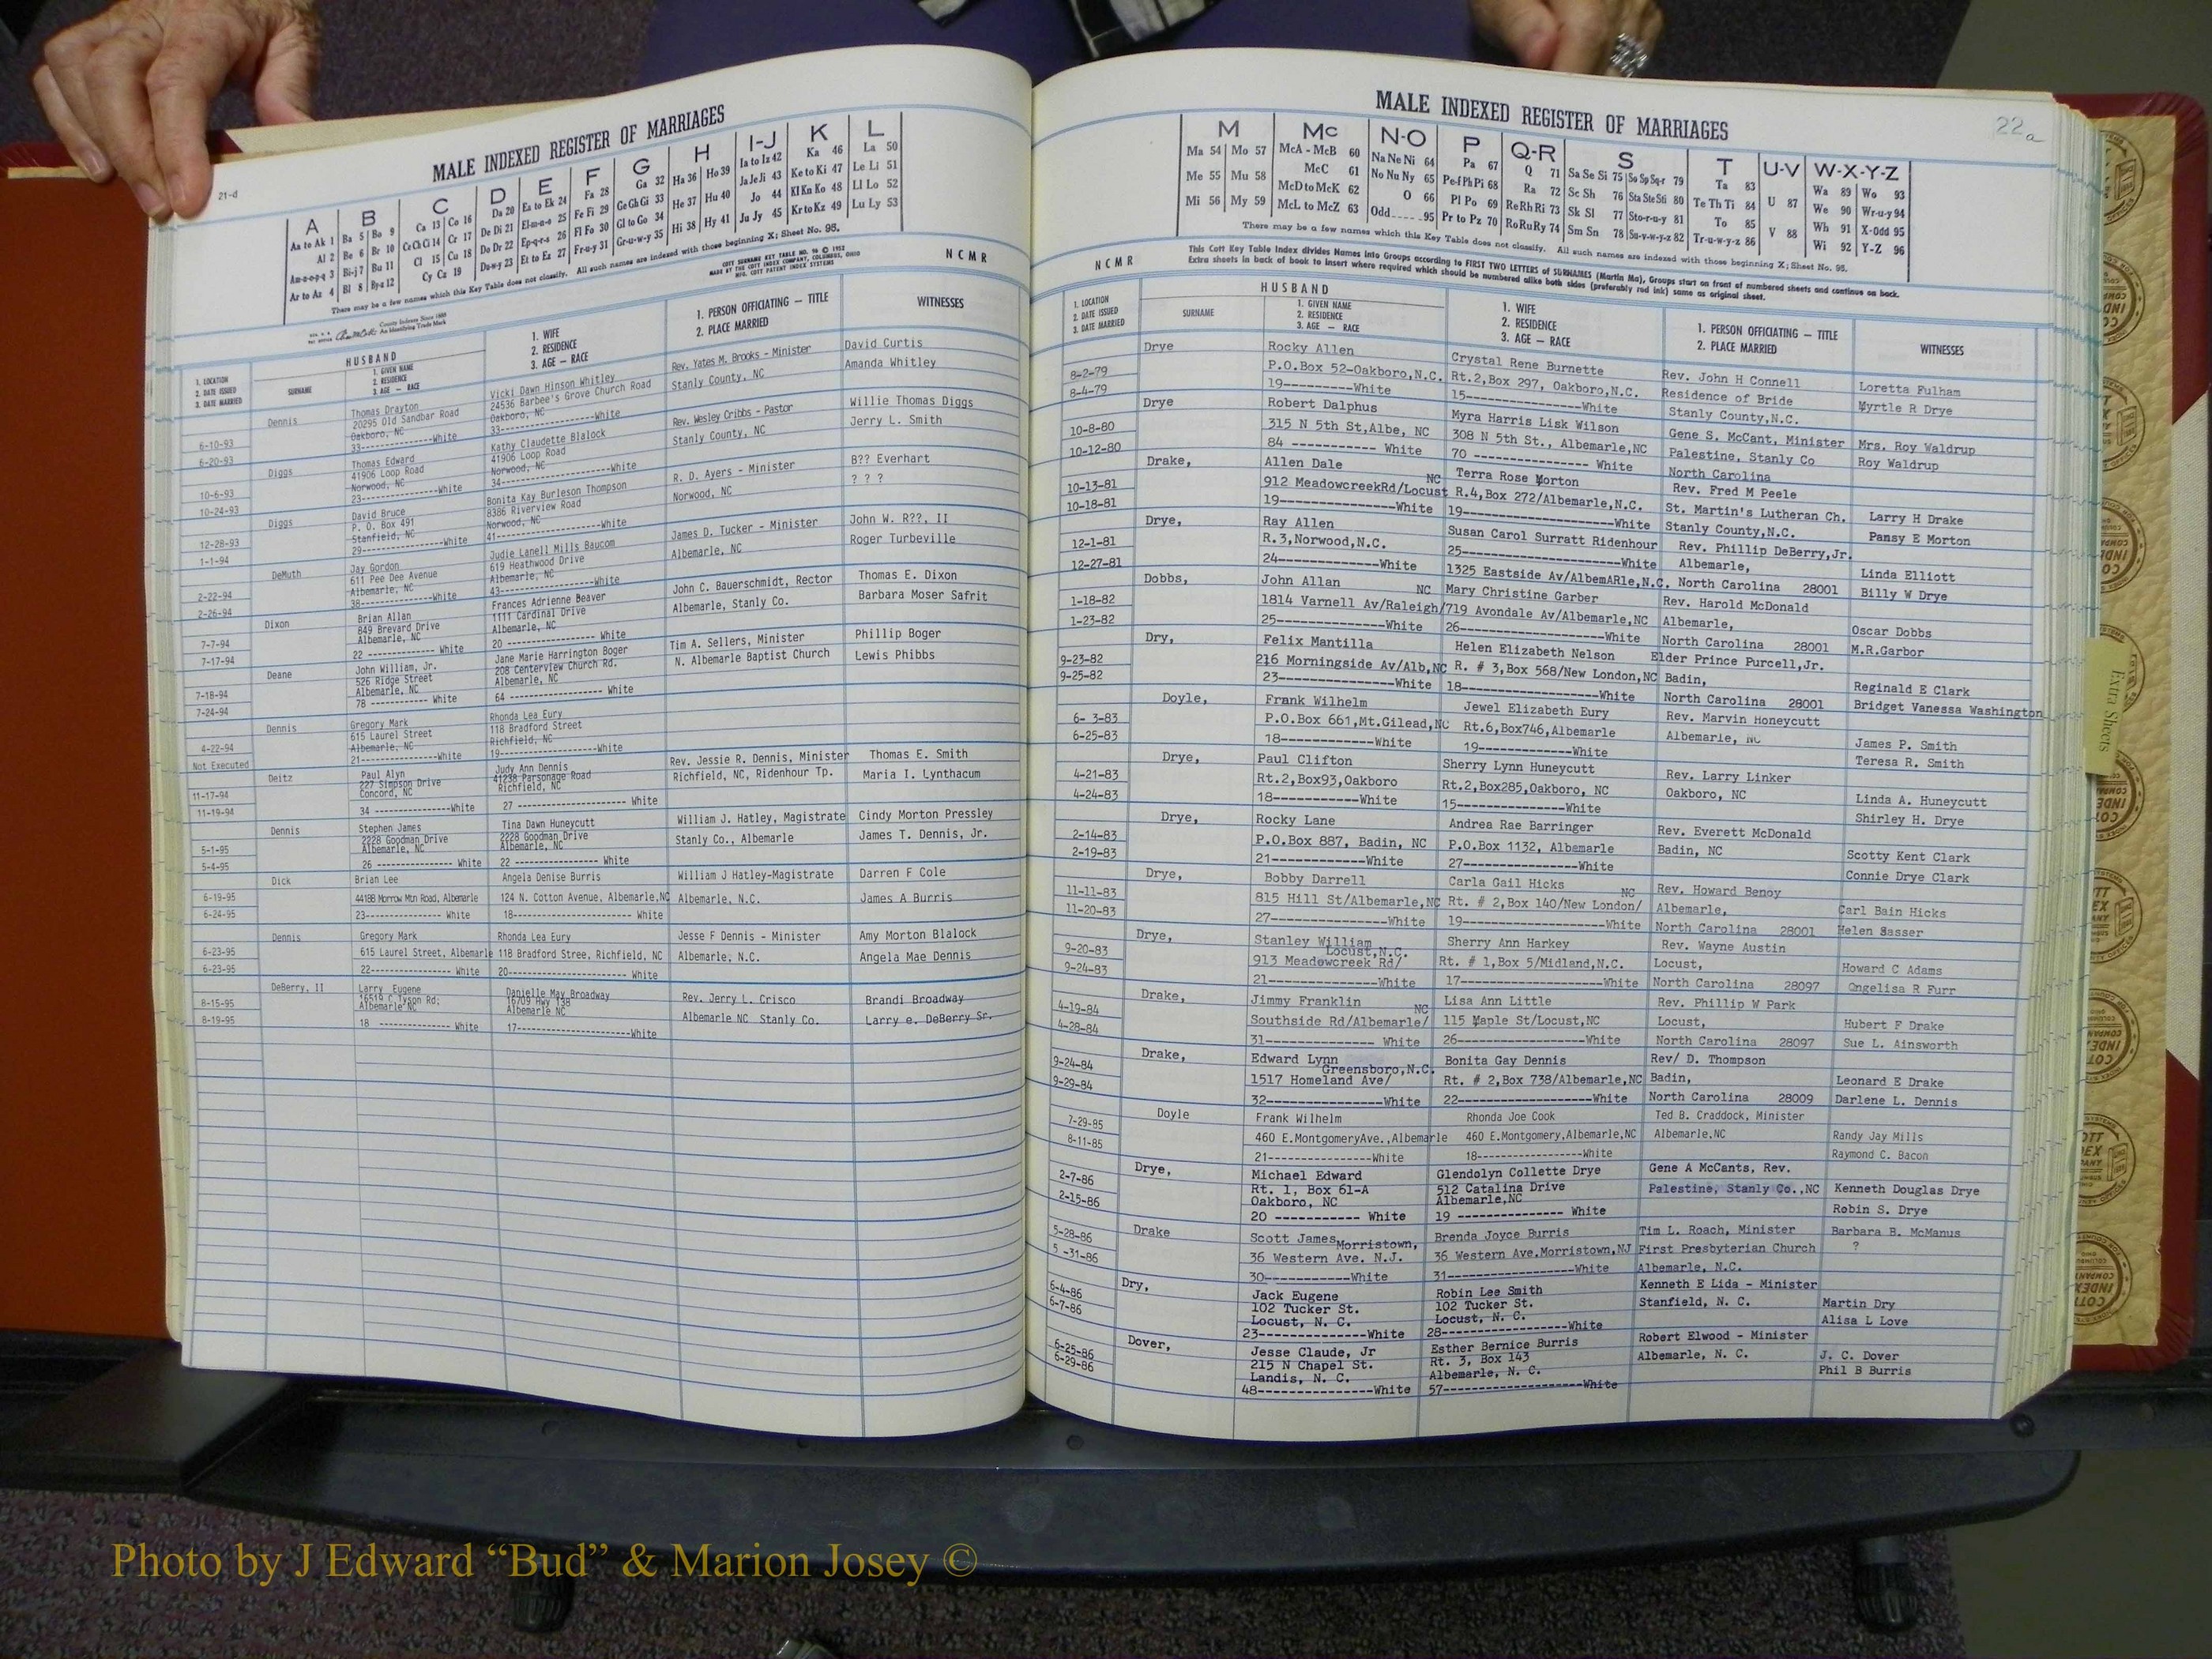 MALE INDEXED REGISTER OF MARRIAGES
21-d
A B C D E F G H I-J K L
Aa to Ak 1 Ba 5 Bo 9 Ca 13 Co 16 Da 20 Ea to Ek 24 Fa 28 Ga 32 Ha 36 Ho 39 Ia to Iz 42 Ka 46 La 50
Al 2 Be 6 Br 10 Ce Ch Ci 14 Cr 17 De Di 21 El-m-n-o 25 Fe Fi 29 Ge Gh Gi 33 He 37 Hu 40 Ja Je Ji 43 Ke to Ki 47 Le Li 51
Am-n-o-p-q 3 Bi-j 7 Bu 11 Cl 15 Cu 18 Do Dr 22 Ep-q-r-s 26 Fl Fo 30 Gl to Go 34 Hi 38 Hy 41 Jo 44 Kl Kn Ko 48 Ll Lo 52
Ar to Az 4 Bl 8 By-z 12 Cy Cz 19 Du-w-y 23 Et to Ez 27 Fr-u-y 31 Gr-u-w-y 35 Ju Jy 45 Kr to Kz 49 Lu Ly 53
There may be a few names which this Key Table does not classify. All such names are indexed with those beginning X; Sheet No. 95.
COTT SURNAME KEY TABLE NO. 96 © 1952
MADE BY THE COTT INDEX COMPANY, COLUMBUS, OHIO
MFG. COTT PATENT INDEX SYSTEMS
County Indexes Since 1888
An Identifying Trade Mark
NCMR
1. LOCATION
2. DATE ISSUED
3. DATE MARRIED
HUSBAND
SURNAME
1. GIVEN NAME
2. RESIDENCE
3. AGE — RACE
1. WIFE
2. RESIDENCE
3. AGE — RACE
1. PERSON OFFICIATING — TITLE
2. PLACE MARRIED
WITNESSES
Dennis Thomas Drayton Vicki Dawn Hinson Whitley Rev. Yates M. Brooks - Minister David Curtis
20295 Old Sandbar Road 24536 Barbee's Grove Church Road Stanly County, NC Amanda Whitley
6-10-93 Oakboro, NC Oakboro, NC
6-20-93 33--------------White 33--------------White
Diggs Thomas Edward Kathy Claudette Blalock Rev. Wesley Cribbs - Pastor Willie Thomas Diggs
41906 Loop Road 41906 Loop Road Stanly County, NC Jerry L. Smith
10-6-93 Norwood, NC Norwood, NC
10-24-93 23--------------White 34--------------White
Diggs David Bruce Bonita Kay Burleson Thompson R. D. Ayers - Minister B?? Everhart
P. O. Box 491 8386 Riverview Road Norwood, NC ? ? ?
12-28-93 Stanfield, NC Norwood, NC
1-1-94 29----------------White 41----------------White
DeMuth Jay Gordon Judie Lanell Mills Baucom James D. Tucker - Minister John W. R??, II
611 Pee Dee Avenue 619 Heathwood Drive Albemarle, NC Roger Turbeville
2-22-94 Albemarle, NC Albemarle, NC
2-26-94 38--------------White 43--------------White
Dixon Brian Allan Frances Adrienne Beaver John C. Bauerschmidt, Rector Thomas E. Dixon
849 Brevard Drive 1111 Cardinal Drive Albemarle, Stanly Co. Barbara Moser Safrit
7-7-94 Albemarle, NC Albemarle, NC
7-17-94 22 -------------- White 20 ---------------- White
Deane John William, Jr. Jane Marie Harrington Boger Tim A. Sellers, Minister Phillip Boger
526 Ridge Street 208 Centerview Church Rd. N. Albemarle Baptist Church Lewis Phibbs
7-18-94 Albemarle, NC Albemarle, NC
7-24-94 78 -------------- White 64 ---------------- White
Dennis Gregory Mark Rhonda Lea Eury
615 Laurel Street 118 Bradford Street
4-22-94 Albemarle, NC Richfield, NC
Not Executed 21----------------White 19------------------White
Deitz Paul Alyn Judy Ann Dennis Rev. Jessie R. Dennis, Minister Thomas E. Smith
227 Simpson Drive 41238 Parsonage Road Richfield, NC, Ridenhour Tp. Maria I. Lynthacum
11-17-94 Concord, NC Richfield, NC
11-19-94 34 ----------------White 27 ------------------ White
Dennis Stephen James Tina Dawn Huneycutt William J. Hatley, Magistrate Cindy Morton Pressley
5-1-95 2228 Goodman Drive 2228 Goodman Drive Stanly Co., Albemarle James T. Dennis, Jr.
Albemarle, NC Albemarle, NC
5-4-95 26 ---------------- White 22 ---------------- White
Dick Brian Lee Angela Denise Burris William J Hatley-Magistrate Darren F Cole
6-19-95 44188 Morrow Mtn Road, Albemarle 124 N. Cotton Avenue, Albemarle,NC Albemarle, N.C. James A Burris
6-24-95 23---------------- White 18------------------ White
Dennis Gregory Mark Rhonda Lea Eury Jesse F Dennis - Minister Amy Morton Blalock
6-23-95 615 Laurel Street, Albemarle 118 Bradford Stree, Richfield, NC Albemarle, N.C. Angela Mae Dennis
6-23-95 22---------------- White 20------------------ White
DeBerry, II Larry Eugene Danielle May Broadway Rev. Jerry L. Crisco Brandi Broadway
8-15-95 16519 C Tyson Rd; 16709 Hwy 138 Albemarle NC Stanly Co. Larry e. DeBerry Sr.
Albemarle NC Albemarle NC
8-19-95 18 -------------- White 17------------------White
MALE INDEXED REGISTER OF MARRIAGES
22a
M Mc N-O P Q-R S T U-V W-X-Y-Z
Ma 54 Mo 57 McA - McB 60 Na Ne Ni 64 Pa 67 Q 71 Sa Se Si 75 So Sp Sq-r 79 Ta 83 U 87 Wa 89 Wo 93
Me 55 Mu 58 McC 61 No Nu Ny 65 Pe-f Ph Pi 68 Ra 72 Sc Sh 76 Sta Ste Sti 80 Te Th Ti 84 V 88 We 90 Wr-u-y 94
Mi 56 My 59 McD to McK 62 O 66 Pl Po 69 Re Rh Ri 73 Sk Sl 77 Sto-r-u-y 81 To 85 Wh 91 X-Odd 95
McL to McZ 63 Odd-----95 Pr to Pz 70 Ro Ru Ry 74 Sm Sn 78 Su-v-w-y-z 82 Tr-u-w-y-z 86 Wi 92 Y-Z 96
There may be a few names which this Key Table does not classify. All such names are indexed with those beginning X; Sheet No. 95.
This Cott Key Table Index divides Names into Groups according to FIRST TWO LETTERS of SURNAMES (Martin Ma), Groups start on front of numbered sheets and continue on back.
Extra sheets in back of book to insert where required which should be numbered alike both sides (preferably red ink) same as original sheet.
NCMR
1. LOCATION
2. DATE ISSUED
3. DATE MARRIED
HUSBAND
SURNAME
1. GIVEN NAME
2. RESIDENCE
3. AGE — RACE
1. WIFE
2. RESIDENCE
3. AGE — RACE
1. PERSON OFFICIATING — TITLE
2. PLACE MARRIED
WITNESSES
Drye Rocky Allen Crystal Rene Burnette Rev. John H Connell Loretta Fulham
8-2-79 P.O.Box 52-Oakboro,N.C. Rt.2,Box 297, Oakboro,N.C. Residence of Bride Myrtle R Drye
8-4-79 19----------White 15---------------White Stanly County,N.C.
Drye Robert Dalphus Myra Harris Lisk Wilson Gene S. McCant, Minister Mrs. Roy Waldrup
10-8-80 315 N 5th St,Albe, NC 308 N 5th St., Albemarle,NC Palestine, Stanly Co Roy Waldrup
10-12-80 84 ---------- White 70 --------------- White North Carolina
Drake, Allen Dale Terra Rose Morton Rev. Fred M Peele Larry H Drake
10-13-81 912 MeadowcreekRd/Locust NC R.4,Box 272/Albemarle,N.C. St. Martin's Lutheran Ch. Pansy E Morton
10-18-81 19---------------White 19------------------White Stanly County,N.C.
Drye, Ray Allen Susan Carol Surratt Ridenhour Rev. Phillip DeBerry,Jr. Linda Elliott
12-1-81 R.3,Norwood,N.C. 25------------------White Albemarle, Billy W Drye
12-27-81 24---------------White 1325 Eastside Av/AlbemARle,N.C. North Carolina 28001
Dobbs, John Allan Mary Christine Garber Rev. Harold McDonald Oscar Dobbs
1-18-82 1814 Varnell Av/Raleigh/ NC 719 Avondale Av/Albemarle,NC Albemarle, M.R.Garbor
1-23-82 25---------------White 26------------------White North Carolina 28001
Dry, Felix Mantilla Helen Elizabeth Nelson Elder Prince Purcell,Jr. Reginald E Clark
9-23-82 216 Morningside Av/Alb,NC R. # 3,Box 568/New London,NC Badin, Bridget Vanessa Washington
9-25-82 23---------------White 18------------------White North Carolina 28001
Doyle, Frank Wilhelm Jewel Elizabeth Eury Rev. Marvin Honeycutt James P. Smith
6- 3-83 P.O.Box 661,Mt.Gilead,NC Rt.6,Box746,Albemarle Albemarle, NC Teresa R. Smith
6-25-83 18------------White 19------------White
Drye, Paul Clifton Sherry Lynn Huneycutt Rev. Larry Linker Linda A. Huneycutt
4-21-83 Rt.2,Box93,Oakboro Rt.2,Box285,Oakboro, NC Oakboro, NC Shirley H. Drye
4-24-83 18-----------White 15------------White
Drye, Rocky Lane Andrea Rae Barringer Rev. Everett McDonald Scotty Kent Clark
2-14-83 P.O.Box 887, Badin, NC P.O.Box 1132, Albemarle Badin, NC Connie Drye Clark
2-19-83 21------------White 27---------------White
Drye, Bobby Darrell Carla Gail Hicks Rev. Howard Benoy Carl Bain Hicks
11-11-83 815 Hill St/Albemarle,NC Rt. # 2,Box 140/New London/ NC Albemarle, Helen Sasser
11-20-83 27---------------White 19------------------White North Carolina 28001
Drye, Stanley William Sherry Ann Harkey Rev. Wayne Austin Howard C Adams
9-20-83 913 Meadowcreek Rd/ Locust,N.C. Rt. # 1,Box 5/Midland,N.C. Locust, Ongelisa R Furr
9-24-83 21---------------White 17------------------White North Carolina 28097
Drake, Jimmy Franklin Lisa Ann Little Rev. Phillip W Park Hubert F Drake
4-19-84 Southside Rd/Albemarle/ NC 115 Maple St/Locust,NC Locust, Sue L. Ainsworth
4-28-84 31-------------- White 26------------------White North Carolina 28097
Drake, Edward Lynn Bonita Gay Dennis Rev/ D. Thompson Leonard E Drake
9-24-84 1517 Homeland Ave/ Greensboro,N.C. Rt. # 2,Box 738/Albemarle,NC Badin, Darlene L. Dennis
9-29-84 32---------------White 22------------------White North Carolina 28009
Doyle Frank Wilhelm Rhonda Joe Cook Ted B. Craddock, Minister Randy Jay Mills
7-29-85 460 E.MontgomeryAve.,Albemarle 460 E.Montgomery,Albemarle,NC Albemarle,NC Raymond C. Bacon
8-11-85 21---------------White 18------------------White
Drye, Michael Edward Glendolyn Collette Drye Gene A McCants, Rev. Kenneth Douglas Drye
2-7-86 Rt. 1, Box 61-A 512 Catalina Drive Palestine, Stanly Co.,NC Robin S. Drye
2-15-86 Oakboro, NC Albemarle,NC
20 ----------- White 19 -------------- White
Drake Scott James Brenda Joyce Burris Tim L. Roach, Minister Barbara B. McManus
5-28-86 36 Western Ave. N.J. Morristown, 36 Western Ave.Morristown,NJ First Presbyterian Church ?
5 -31-86 30-----------White 31----------------White Albemarle, N.C.
Dry, Jack Eugene Robin Lee Smith Kenneth E Lida - Minister Martin Dry
6-4-86 102 Tucker St. 102 Tucker St. Stanfield, N. C. Alisa L Love
6-7-86 Locust, N. C. Locust, N. C.
23---------------White 28------------------White
Dover, Jesse Claude, Jr Esther Bernice Burris Robert Elwood - Minister J. C. Dover
6-25-86 215 N Chapel St. Rt. 3, Box 143 Albemarle, N. C. Phil B Burris
6-29-86 Landis, N. C. Albemarle, N. C.
48---------------White 57------------------White
Extra Sheets
Photo by J Edward “Bud” & Marion Josey ©